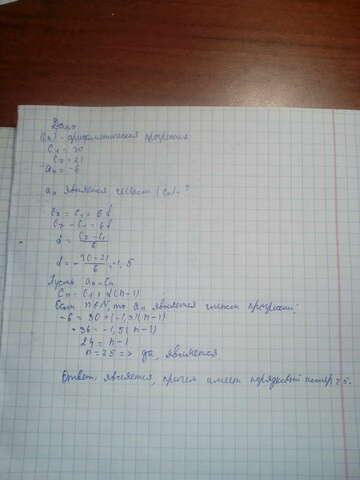 Дано
(Cn) - арифметическая прогрессия
C1 = 30
C7 = 21
an = -6
an является членом (Cn) - ?
C7 = C1 + 6d
C7 - C1 = 6d
d = (C7 - C1)/6
d = - (30 - 21)/6 = -1,5
Пусть an = Cn
Cn = C1 + d(n-1)
Если n∈N, то an является членом прогрессии:
-6 = 30 + (-1,5)(n-1)
-36 = -1,5(n-1)
24 = n-1
n = 25 => да, является
Ответ: является, причем имеет порядковый номер 25.